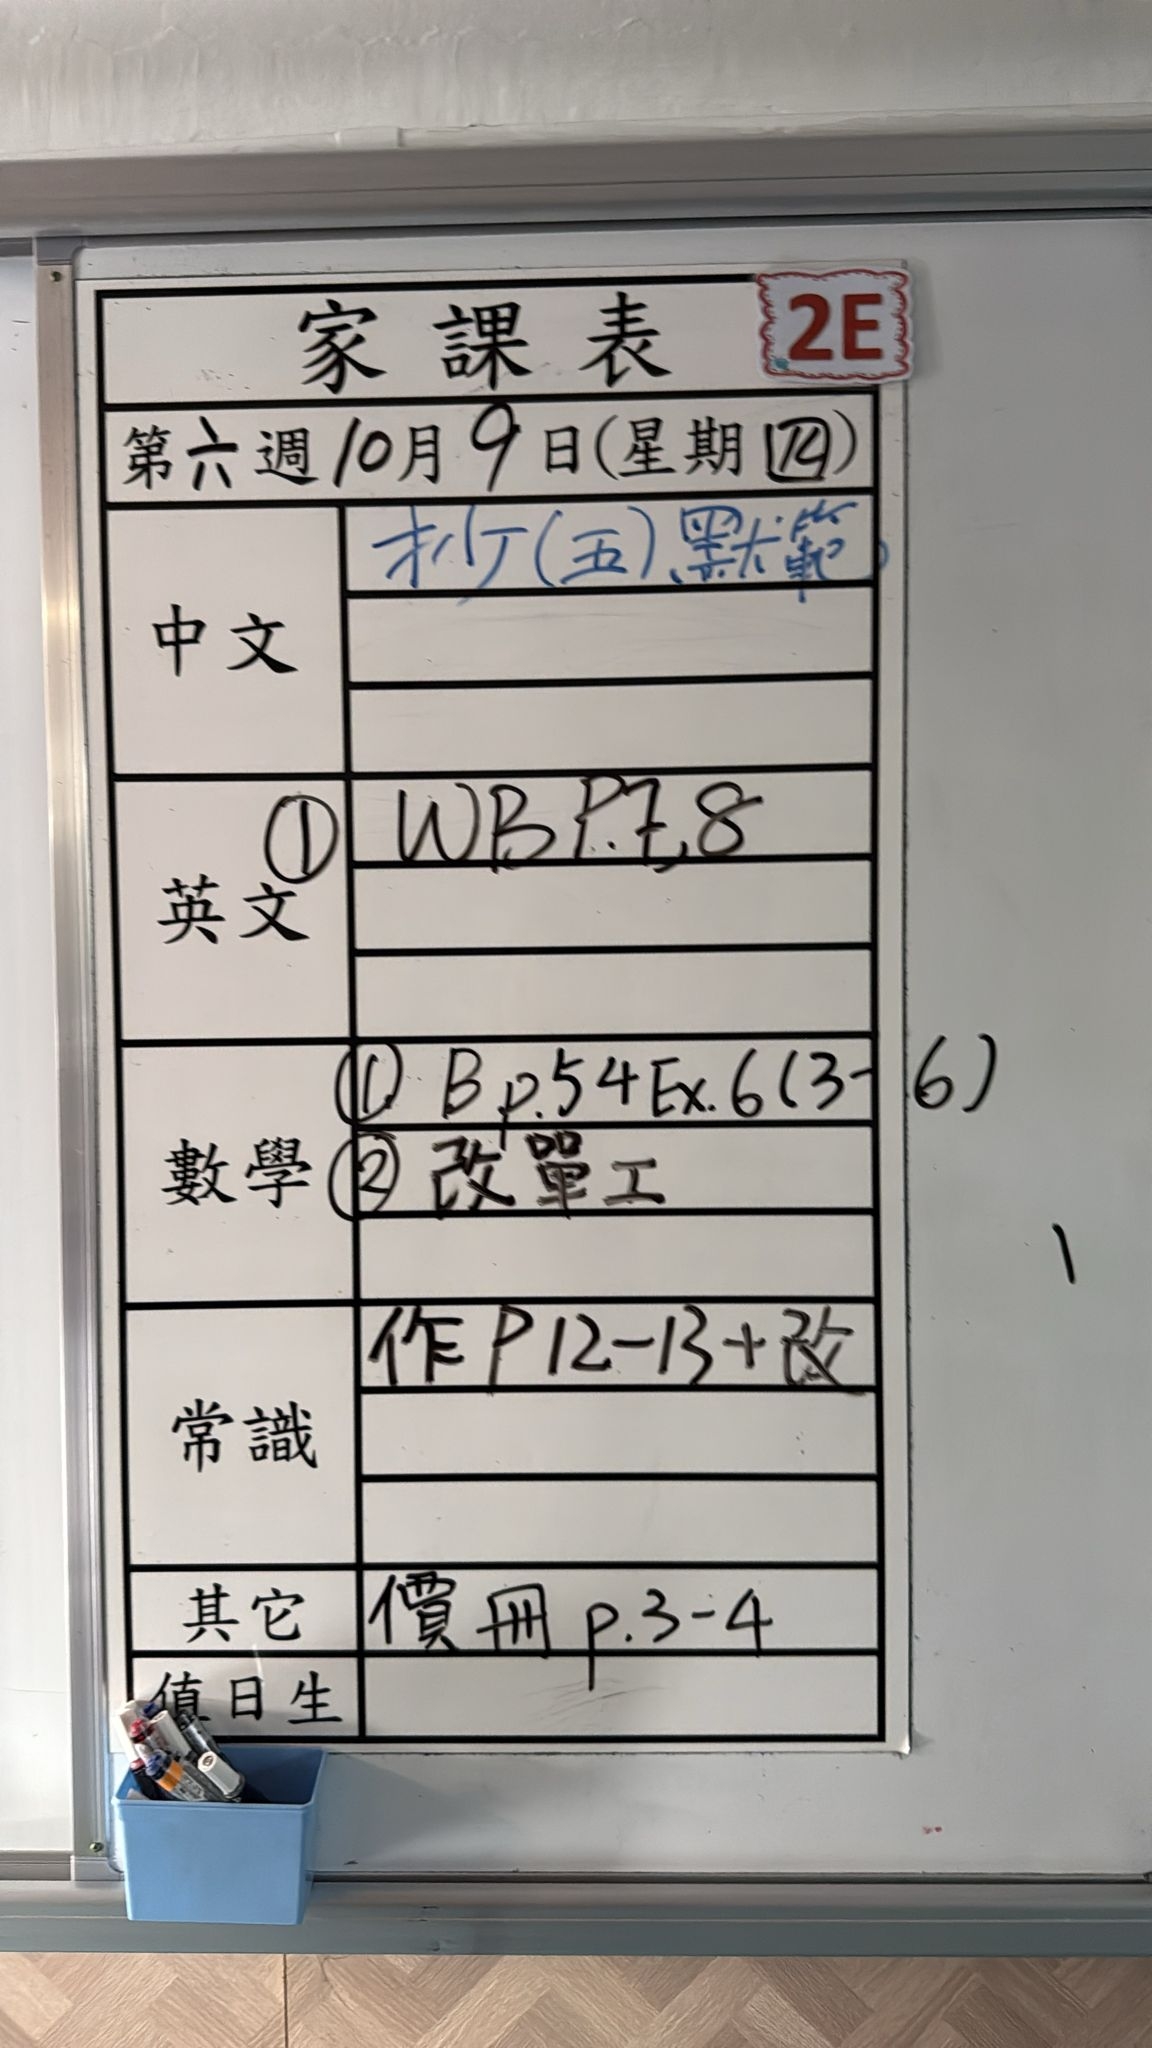 家課表 2E
第六週10月9日(星期四)
中文 抄(五)默範
英文 ① WB P.7,8
數學 ① B p.54 Ex.6(3-6)
② 改單工
常識 作P12-13+改
其它 價冊 p.3-4
值日生